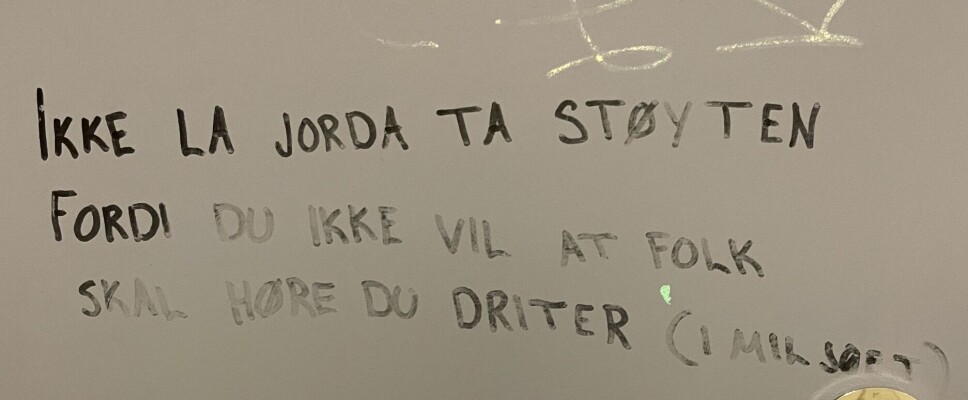 IKKE LA JORDA TA STØYTEN
FORDI DU IKKE VIL AT FOLK
SKAL HØRE DU DRITER (I MILJØET)